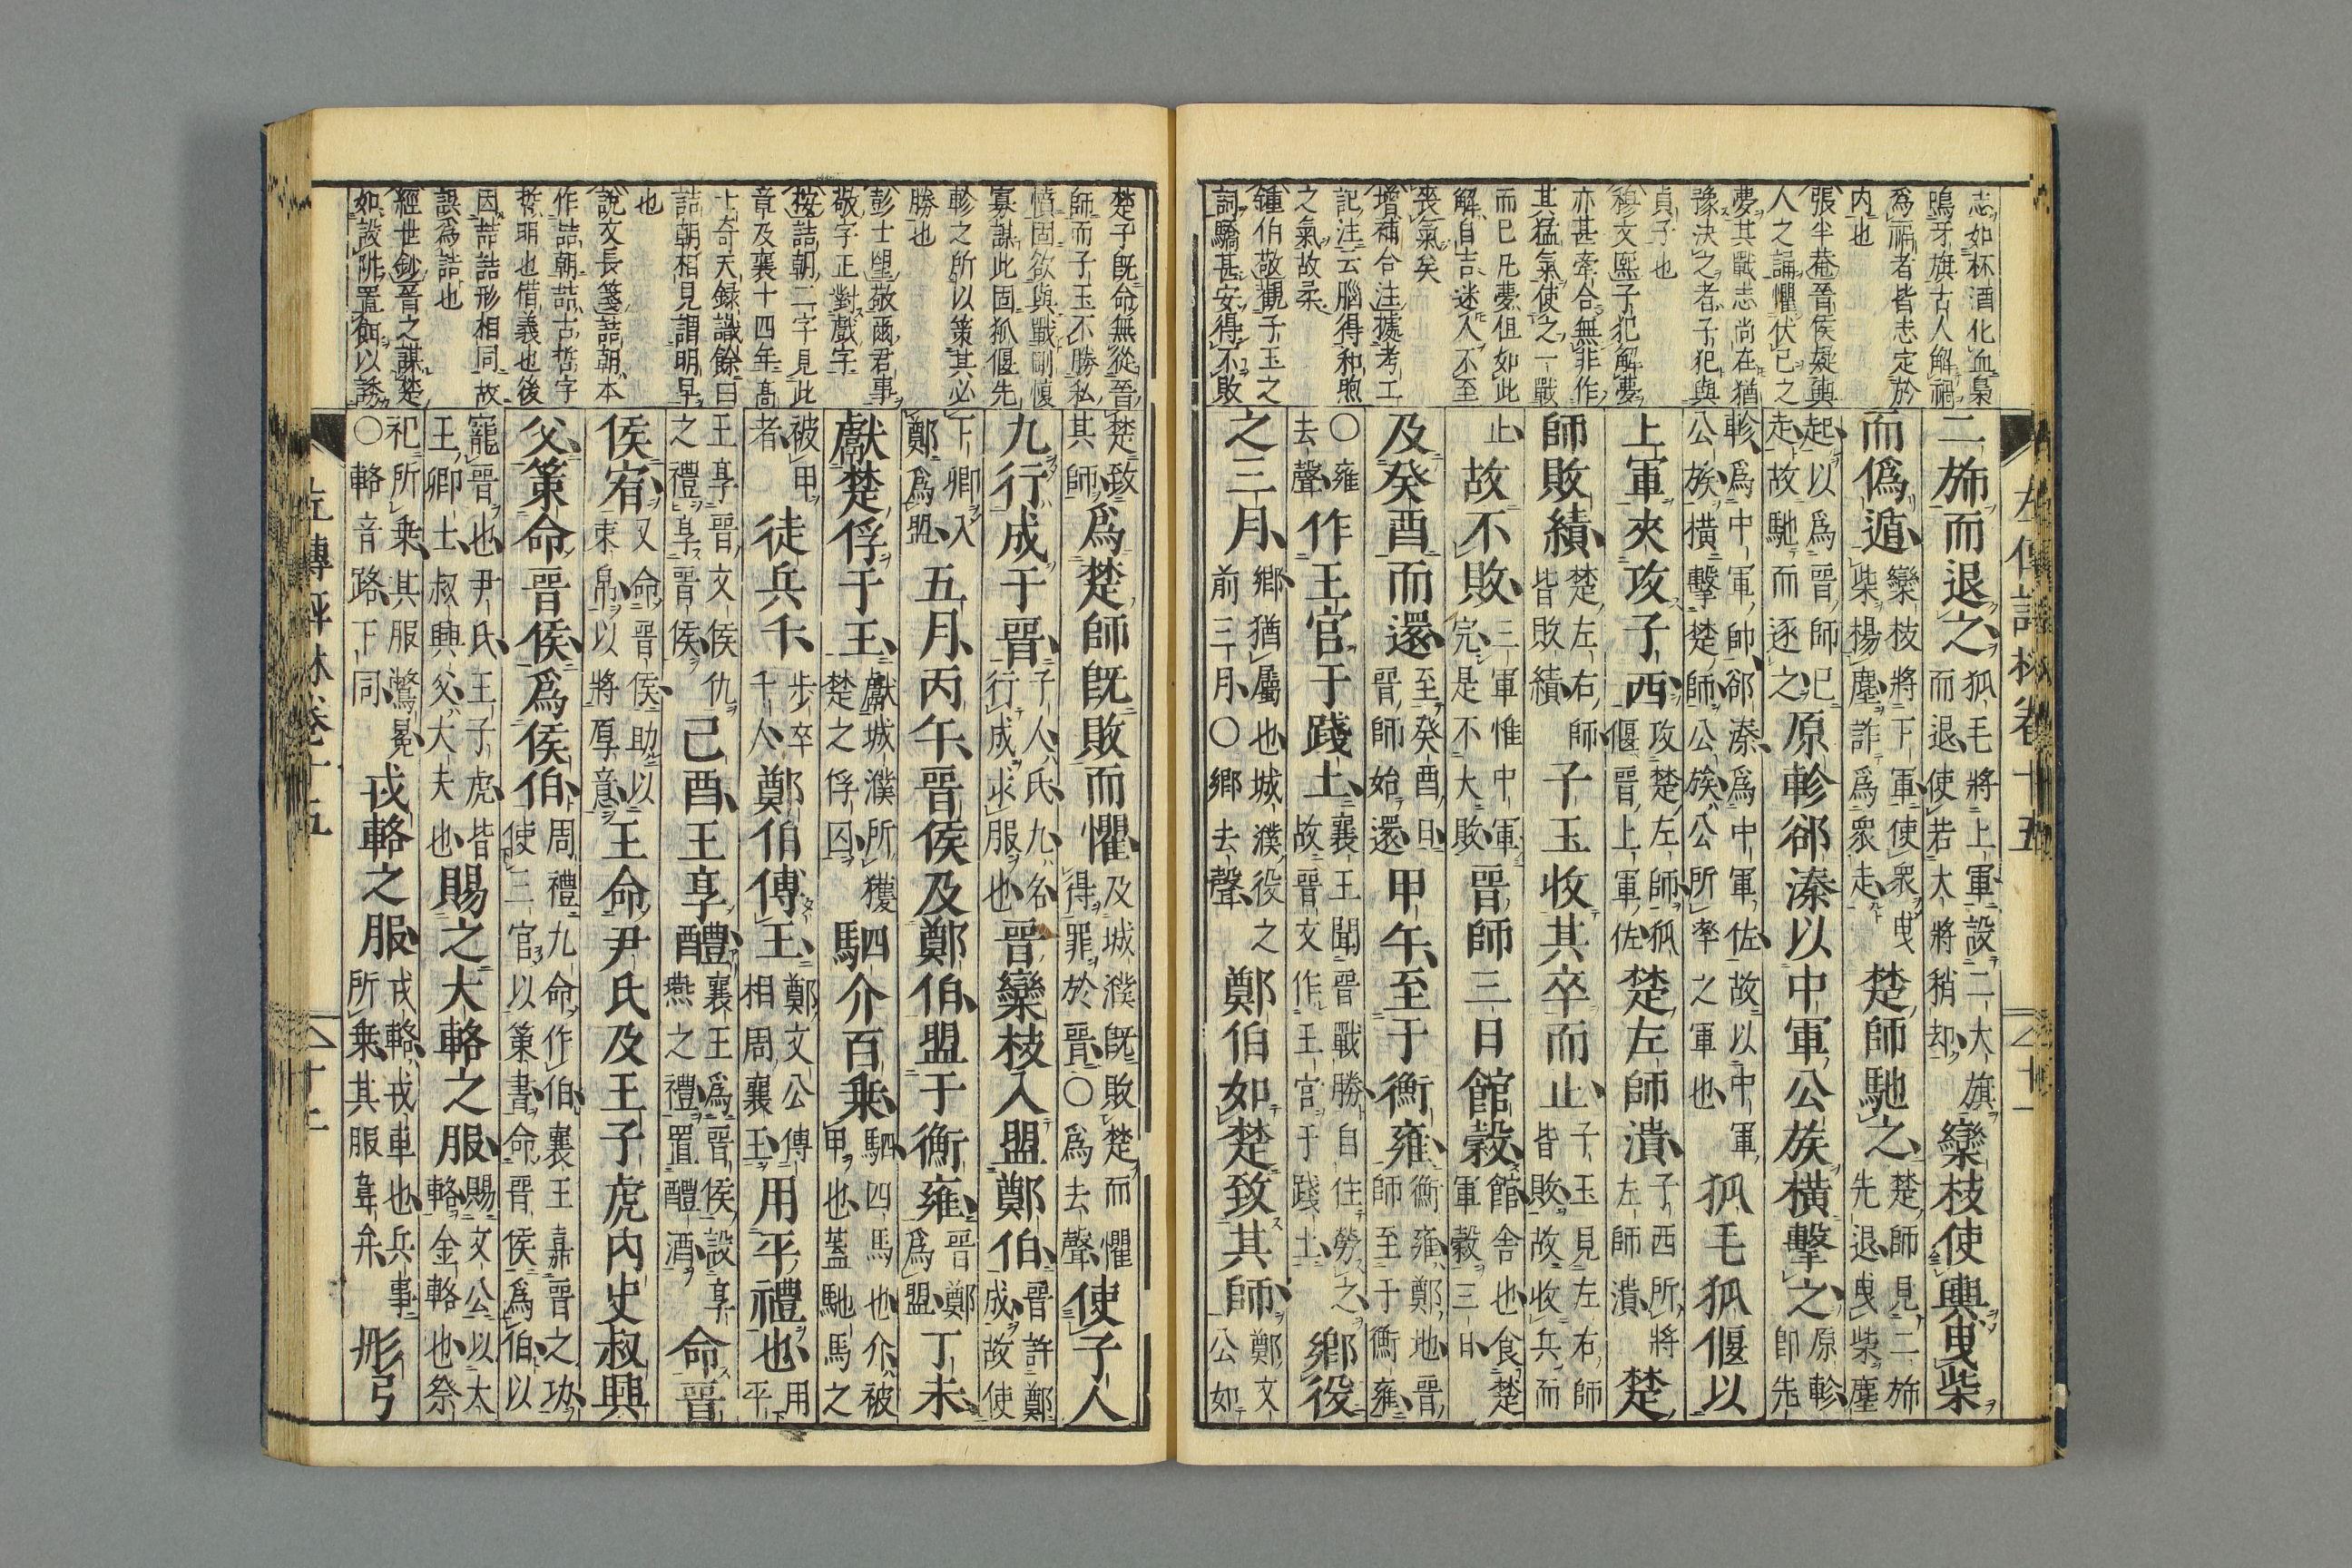 志如杯酒化血梟
鳴牙旗古人解禍
爲禍者皆志定於
内也
張半菴晉侯疑輿
人之誦懼伏已之
夢其戰志尚在猶
豫決之者子犯與
貞子也
穆文熙子犯解夢
亦甚牽合無非作
其猛氣使之一戰
而已凡夢但如此
解自吉迷人不至
喪氣矣
增補合注據考工
記注云腦得和煦
之氣故柔
鍾伯敬觀子玉之
詞驕甚安得不敗
二旆而退之狐毛將上軍設二大旗而退使若大將稍却欒枝使輿曳柴
而僞遁欒枝將下軍使衆曳柴楊塵詐爲衆走楚師馳之楚師見二旆先退曳柴塵
起以爲晉師已走故馳而逐之原軫郤溱以中軍公族橫擊之原軫即先
軫爲中軍帥郤溱爲中軍佐故以中軍公族橫擊楚師公族公所率之軍也狐毛狐偃以
上軍夾攻子西攻楚左師狐偃晉上軍佐楚左師潰子西所將左師潰楚
師敗績楚左右師皆敗績子玉收其卒而止子玉見左右師皆敗故收兵而
止故不敗三軍惟中軍完是不大敗晉師三日館穀館舍也食楚軍穀三日
及癸酉而還至癸酉日晉師始還甲午至于衡雍衡雍鄭地晉師至于衡雍
○雍去聲作王官于踐土襄王聞晉戰勝自往勞之故晉文作王官于踐土鄉役
之三月鄉猶屬也城濮役之前三月○鄉去聲鄭伯如楚致其師鄭文公如
左傳評林卷十五
十一
楚子既命無從晉
師而子玉不勝私
憤固欲與戰剛愎
寡謀此固狐偃先
軫之所以策其必
勝也
彭士望敬爾君事
敬字正對戲字
按詰朝二字見此
章及襄十四年高
士奇天録識餘曰
詰朝相見謂明早
也
說文長箋詰朝本
作喆朝喆古哲字
哲明也借義也後
因喆詰形相同故
誤爲詰也
經世鈔晉之謀楚
如設阱置餌以誘
楚致其師爲楚師既敗而懼及城濮既敗楚而懼得罪於晉○爲去聲使子人
九行成于晉子人氏九名行成求服也晉欒枝入盟鄭伯晉許鄭成故使
下卿入鄭爲盟五月丙午晉侯及鄭伯盟于衡雍晉鄭爲盟丁未
獻楚俘于王獻城濮所獲楚之俘囚駟介百乘駟四馬也介被甲也蓋馳馬之
被甲者徒兵千步卒千人鄭伯傅王鄭文公傅相周襄王用平禮也用平
王享晉文侯仇之禮享晉侯己酉王享醴襄王爲晉侯設享燕之禮置醴酒命晉
侯宥又命晉侯助以束帛以將厚意王命尹氏及王子虎内史叔興
父策命晉侯爲侯伯周禮九命作伯襄王嘉晉之功使三官以策書命晉侯爲伯以
寵晉也尹氏王子虎皆王卿士叔興父大夫也賜之大輅之服賜文公以大輅金輅也祭
祀所乘其服鷩冕○輅音路下同戎輅之服戎輅戎車也兵事所乘其服韋弁彤弓
左傳評林卷十五
十二